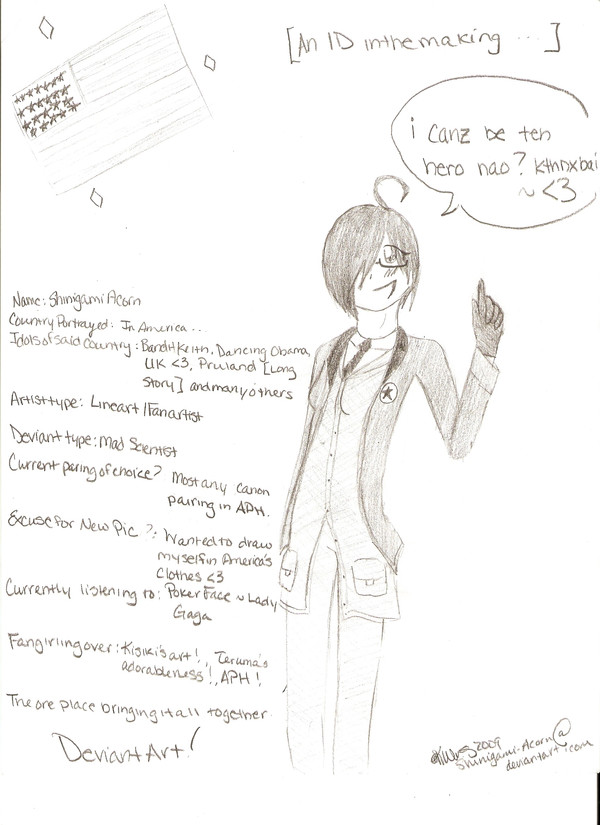 [An ID in the making ... ]
i canz be teh
hero nao? kthnxbai
~ <3
Name: Shinigami Acorn
Country Portrayed: In America ...
Idols of said country: Bandit Keith, Dancing Obama,
UK <3, Pruland [Long
Story] and many others
Artist type: Lineart/Fanartist
Deviant type: Mad Scientist
Current paring of choice? Most any canon
pairing in APH.
Excuse for New Pic?: Wanted to draw
myself in America's
clothes <3
Currently listening to: Poker Face ~ Lady
Gaga
Fangirling over: Kisiki's art!, Teruma's
adorableness!, APH!
The one place bringing it all together.
Deviant Art!
2009
Shinigami-Acorn@
deviantart.com